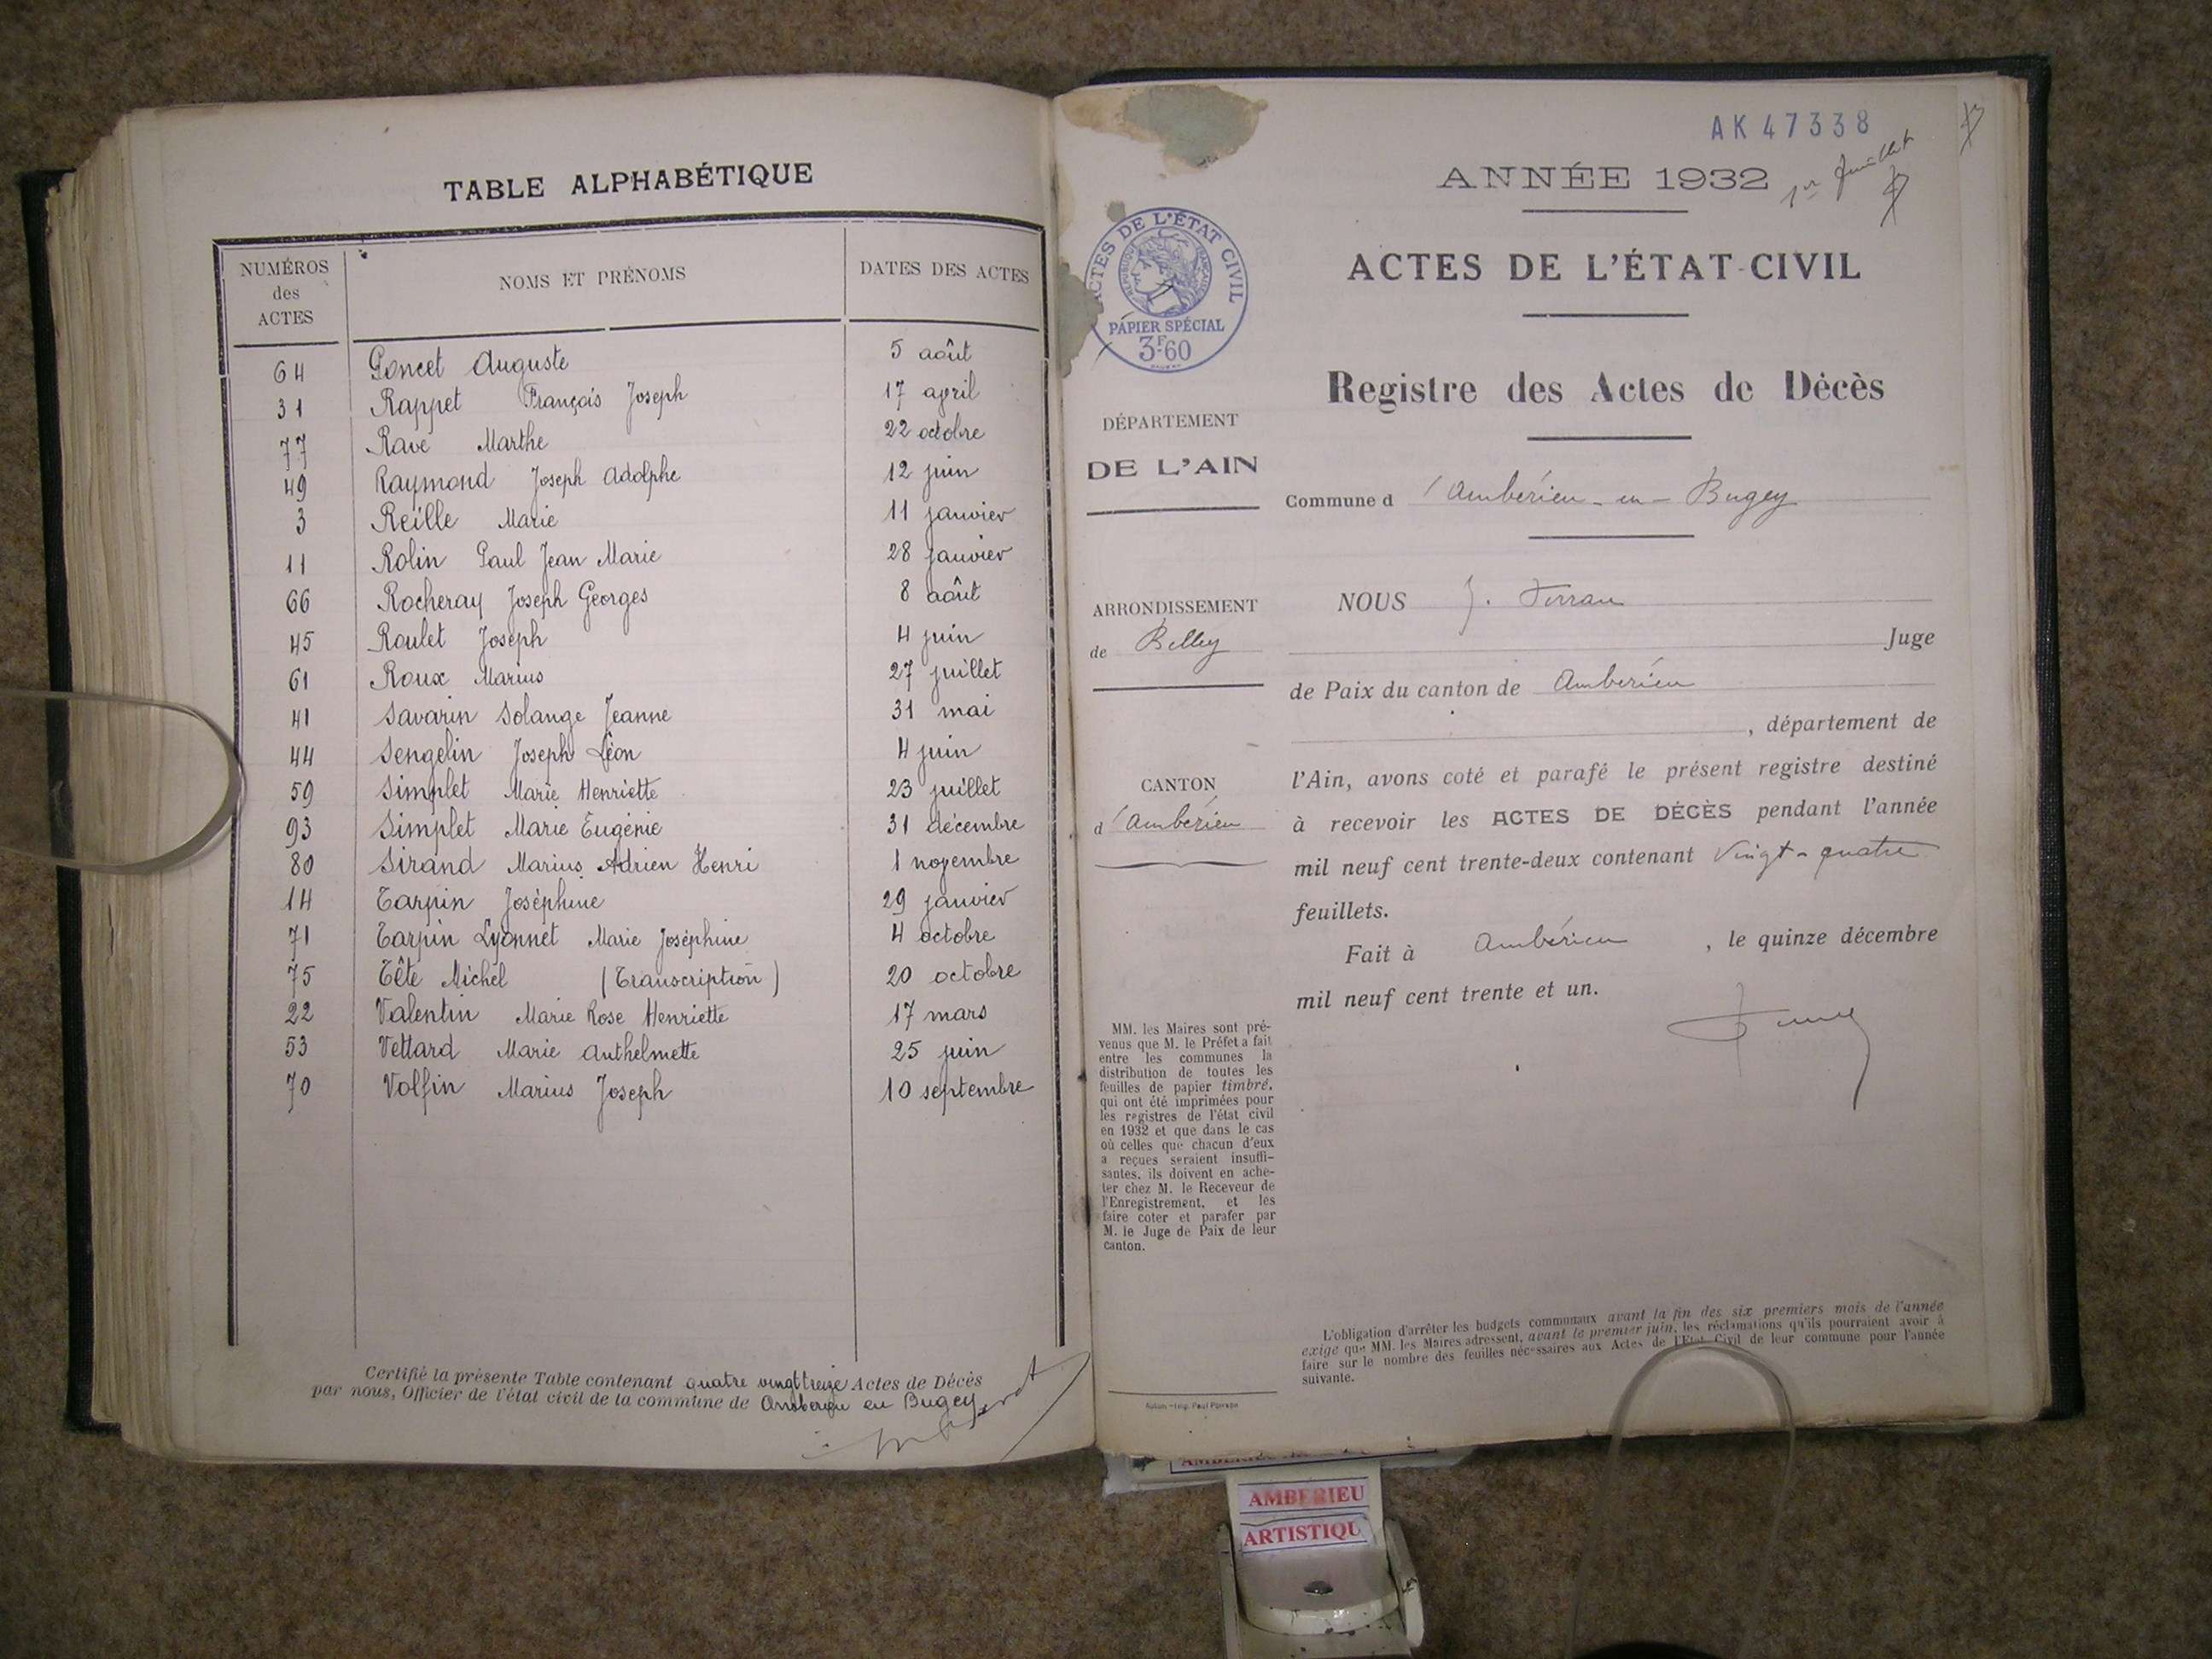 TABLE ALPHABÉTIQUE
NUMÉROS des ACTES NOMS ET PRÉNOMS DATES DES ACTES
64 Poncet Auguste 5 août
31 Rappet François Joseph 17 avril
77 Rave Marthe 22 octobre
49 Raymond Joseph Adolphe 12 juin
3 Reille Marie 11 janvier
11 Rolin Paul Jean Marie 28 janvier
66 Rocheray Joseph Georges 8 août
45 Roulet Joseph 4 juin
61 Roux Marius 27 juillet
41 Savarin Solange Jeanne 31 mai
44 Sengelin Joseph Léon 4 juin
59 Simplet Marie Henriette 23 juillet
93 Simplet Marie Eugénie 31 décembre
80 Sirand Marius Adrien Henri 1 novembre
14 Tarpin Joséphine 29 janvier
71 Tarpin Lyonnet Marie Joséphine 4 octobre
75 Tête Michel (Transcription) 20 octobre
22 Valentin Marie Rose Henriette 17 mars
53 Vettard Marie Anthelmette 25 juin
70 Volfin Marius Joseph 10 septembre
Certifié la présente Table contenant quatre vingt treize Actes de Décès
par nous, Officier de l'état civil de la commune de Ambérieu en Bugey
AK 47338
ANNÉE 1932
1er Juillet
ACTES DE L'ÉTAT CIVIL
RÉPUBLIQUE FRANÇAISE
PAPIER SPÉCIAL
3F60
ACTES DE L'ÉTAT-CIVIL
Registre des Actes de Décès
DÉPARTEMENT
DE L'AIN
Commune d'Ambérieu-en-Bugey
ARRONDISSEMENT
de Belley
CANTON
d'Ambérieu
NOUS J.
Juge
de Paix du canton de Ambérieu
, département de
l'Ain, avons coté et parafé le présent registre destiné
à recevoir les ACTES DE DÉCÈS pendant l'année
mil neuf cent trente-deux contenant Vingt-quatre
feuillets.
Fait à Ambérieu, le quinze décembre
mil neuf cent trente et un.
MM. les Maires sont pré-
venus que M. le Préfet a fait
entre les communes la
distribution de toutes les
feuilles de papier timbré,
qui ont été imprimées pour
les registres de l'état civil
en 1932 et que dans le cas
où celles que chacun d'eux
a reçues seraient insuffi-
santes, ils doivent en ache-
ter chez M. le Receveur de
l'Enregistrement, et les
faire coter et parafer par
M. le Juge de Paix de leur
canton.
L'obligation d'arrêter les budgets communaux avant la fin des six premiers mois de l'année
exige que MM. les Maires adressent, avant le premier juin, les réclamations qu'ils pourraient avoir à
faire sur le nombre des feuilles nécessaires aux Actes de l'Etat Civil de leur commune pour l'année
suivante.
AMBERIEU
ARTISTIQU